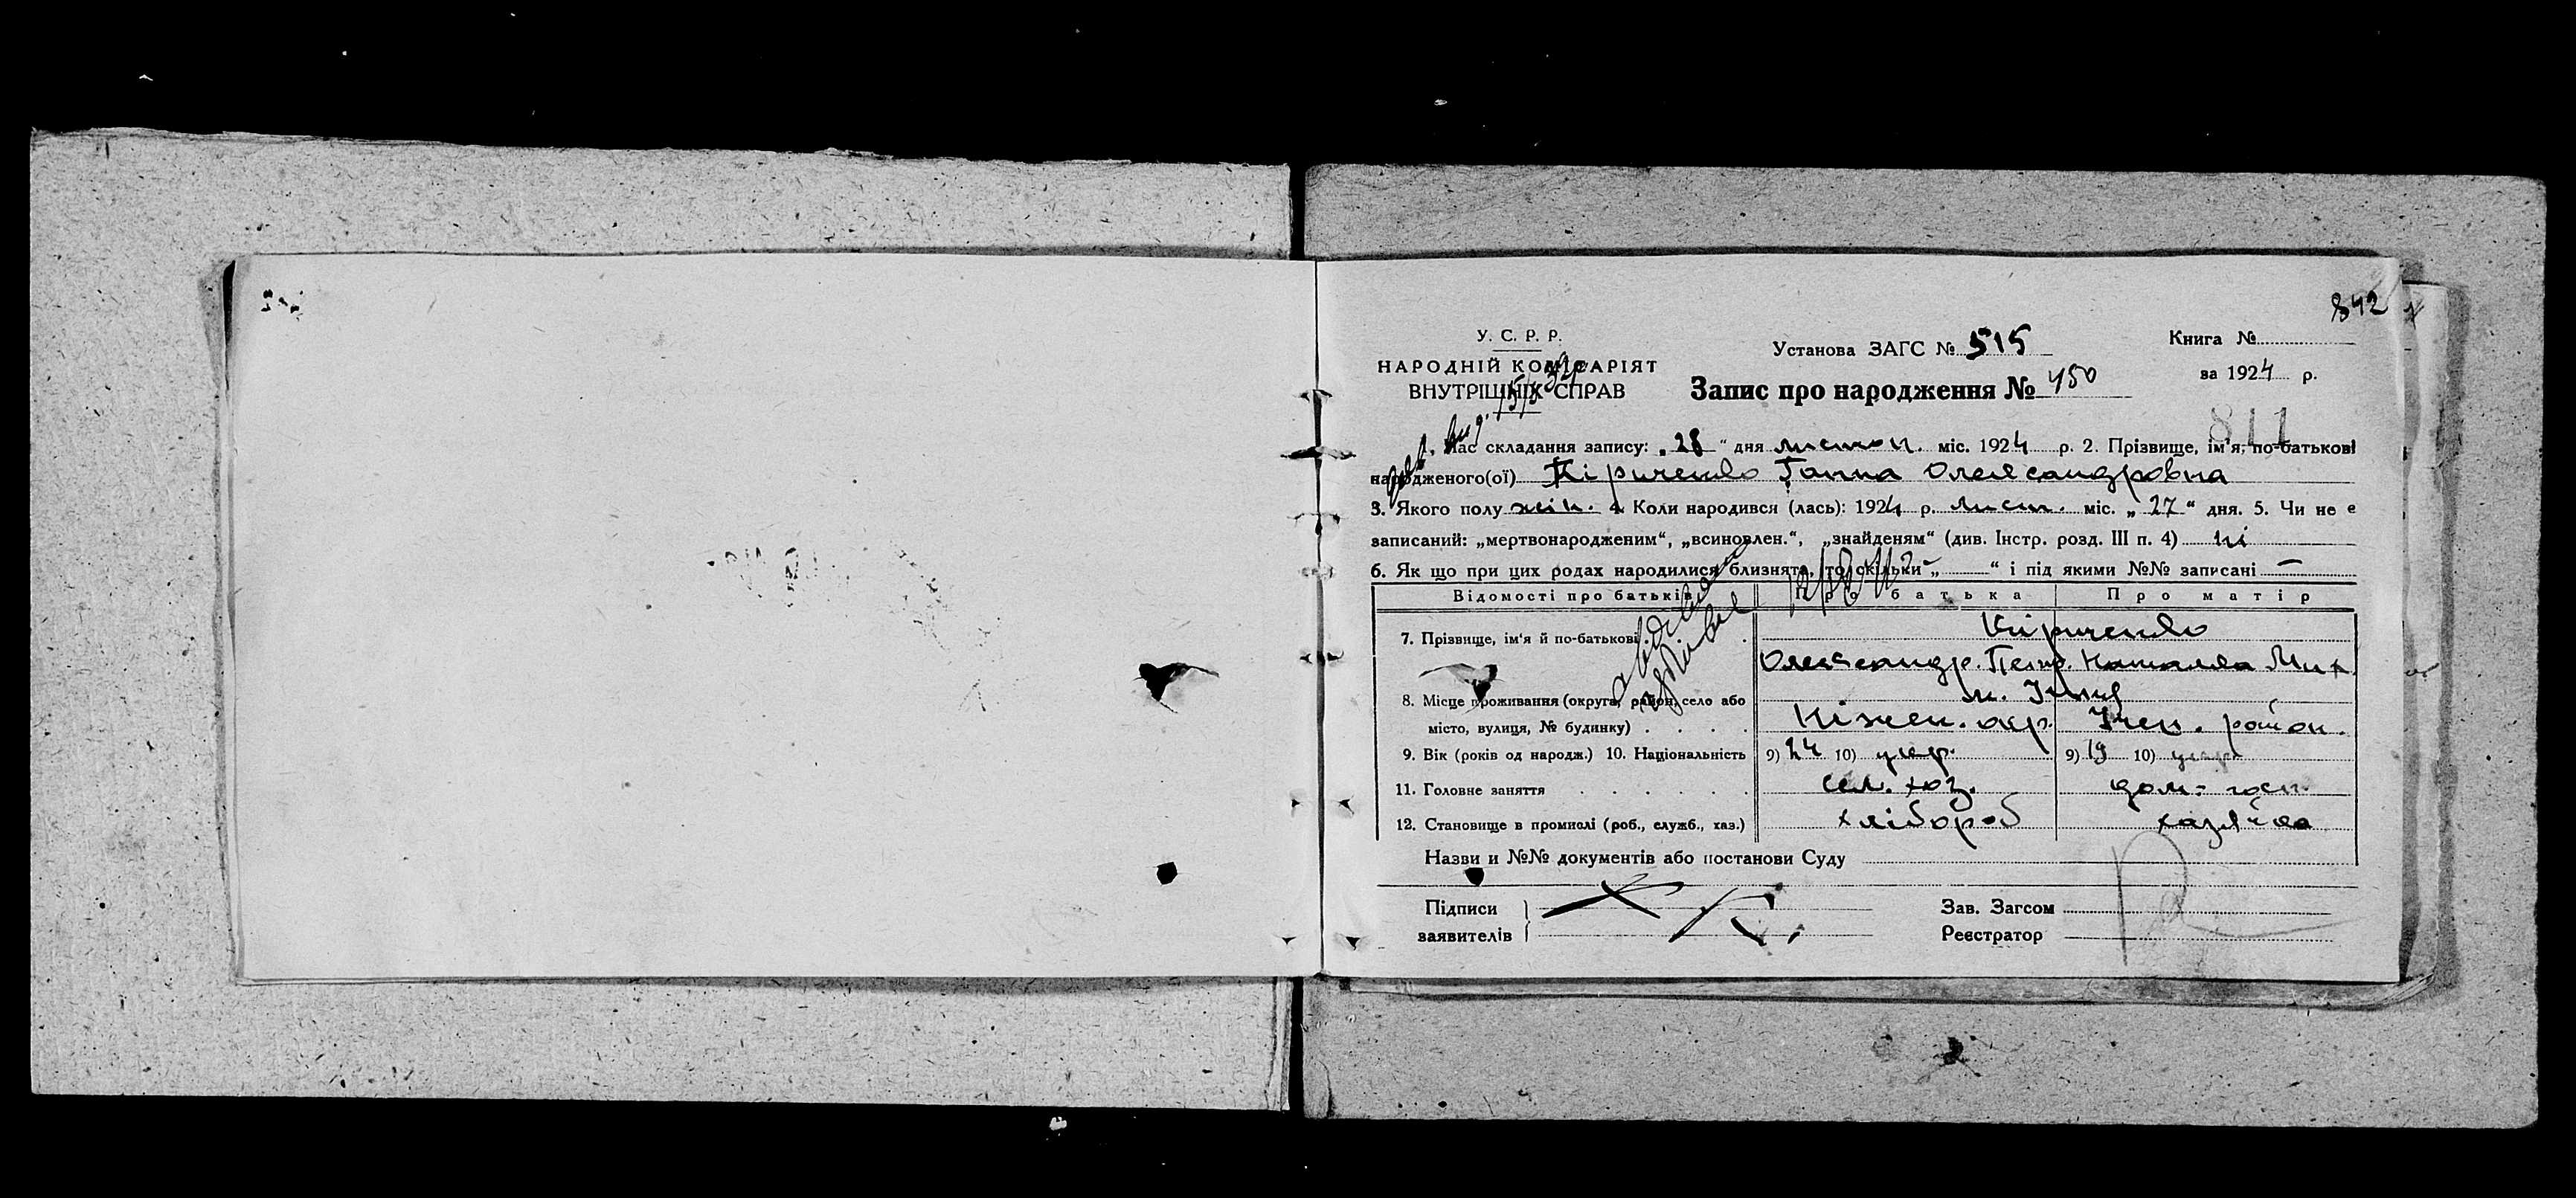 842
У. С. Р. Р.
НАРОДНІЙ КОМІСАРІЯТ
ВНУТРІШНІХ СПРАВ
Установа ЗАГС № 515
Запис про народження № 450
Книга №
за 1924 р.
811
1. Час складання запису: „28“ дня листоп. міс. 1924 р. 2. Прізвище, ім'я, по-батькові
народженого(ої) Кіриченко Ганна Олександровна
3. Якого полу жін. 4. Коли народився (лась): 1924 р. лист. міс. „27“ дня. 5. Чи не є
записаний: „мертвонародженим“, „всиновлен.“, „знайденям“ (див. Інстр. розд. III п. 4) ні
6. Як що при цих родах народилися близнята, то скільки „ “ і під якими №№ записані —
Відомості про батьків Про батька Про матір
7. Прізвище, ім'я й по-батькові Кіриченко
Олександр. Петр. Наталля Мих.
8. Місце проживання (округа, район, село або м. Ічня
місто, вулиця, № будинку) Ніжен. окр. Ічен. район.
9. Вік (років од народж.) 10. Національність 9) 24 10) укр. 9) 19 10) укр.
11. Головне заняття сел. хоз. дом. госп.
12. Становище в промислі (роб., служб., хаз.) хлібороб хазяйка
Назви и №№ документів або постанови Суду
Підписи
заявителів
Зав. Загсом
Реєстратор